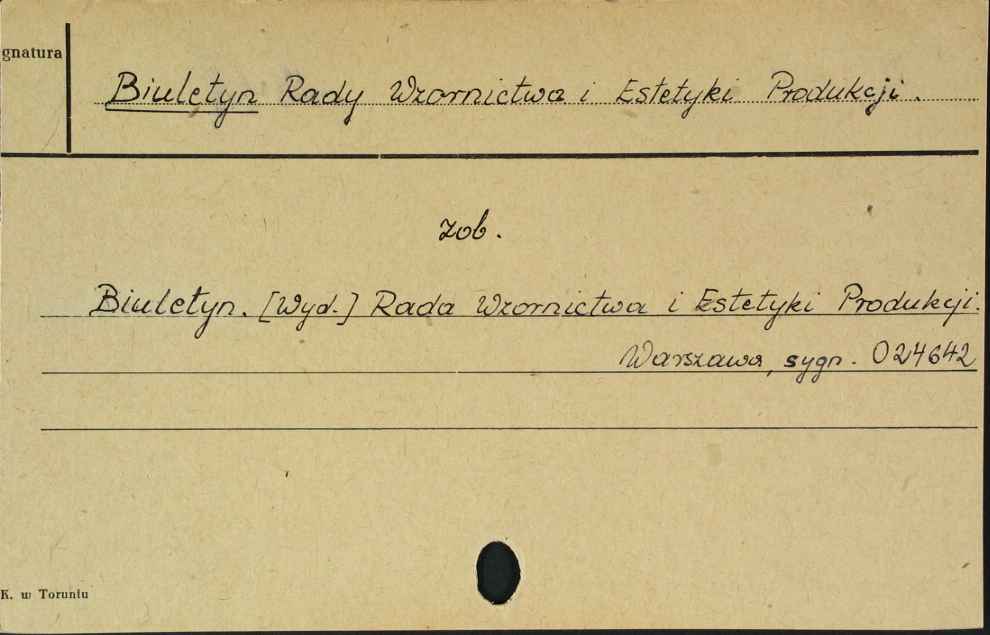 gnatura
Biuletyn Rady Wzornictwa i Estetyki Produkcji.
zob.
Biuletyn. [Wyd.] Rada Wzornictwa i Estetyki Produkcji.
Warszawa, sygn. 024642
K. w Toruniu